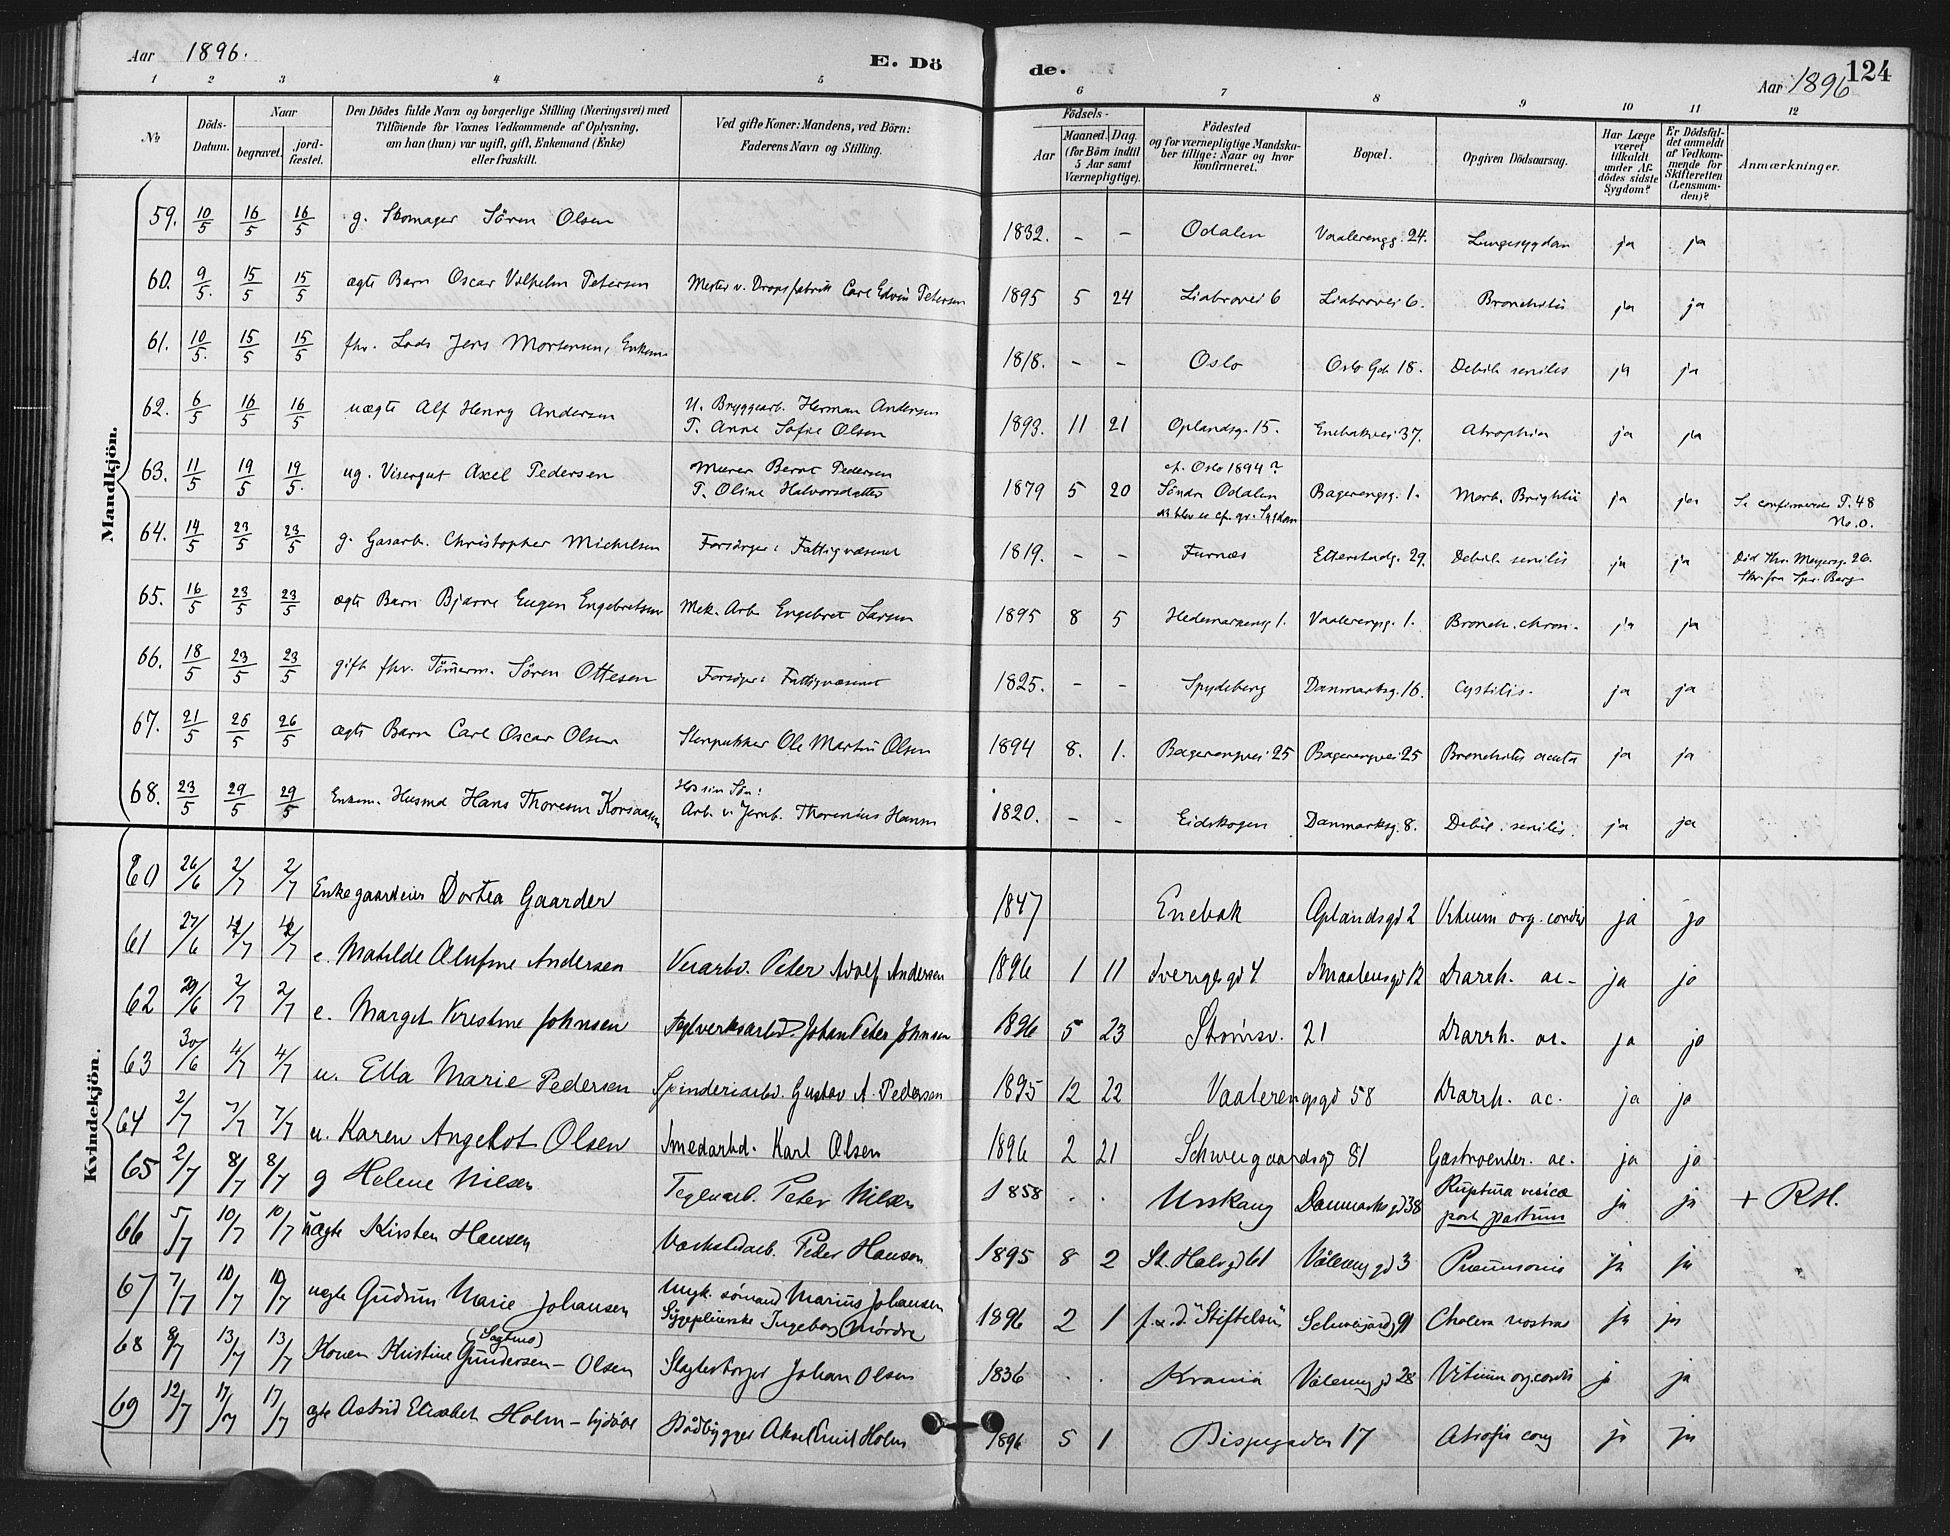 Aar 1896.
E. Dö
de.
Aar 1896
124
1 2 3 4 5
6 7 8 9 10 11 12
№
Döds-Datum.
Naar
begravet.
jord-fæstet.
Den Dödes fulde Navn og borgerlige Stilling (Næringsvei) med
Tilföiende for Voxnes Vedkommende af Oplysning,
om han (hun) var ugift, gift, Enkemand (Enke)
eller fraskilt.
Ved gifte Koner: Mandens, ved Börn:
Faderens Navn og Stilling.
Födsels-
Aar
Maaned. Dag.
(for Börn indtil
5 Aar samt
Værnepligtige).
Födested
og for værnepligtige Mandska-
ber tillige: Naar og hvor
konfirmeret.
Bopæl.
Opgiven Dödsaarsag.
Har Læge
været
tilkaldt
under Af-
dödes sidste
Sygdom?
Er Dödsfal-
det anmeldt
af Vedkom-
mende for
Skifteretten
(Lensman-
den)?
Anmærkninger.
Mandkjön.
59. 10/5 16/5 16/5 g. Skomager Sören Olsen 1832. – – Odalen Vaalerengg. 24. Lungesygdom ja ja
60. 9/5. 15/5 15/5 ægte Barn Oscar Vilhelm Petersen Mester v. Dropsfabrik Carl Edvin Petersen 1895 5 24 Liabrovei 6 Liabrovei 6. Bronchitis ja ja
61. 10/5. 15/5 15/5 fhv. Lods Jens Mortensen, Enkem. 1818. – – Oslo Oslo Gd. 18. Debil. senilis ja ja
62. 6/5 16/5 16/5 uægte Alf Henry Andersen U. Bryggearb. Herman Andersen
P. Anne Sofie Olsen 1893. 11 21 Oplandsg. 15. Enebakvei 37. Atrophia ja ja
63. 11/5 19/5 19/5. ug. Visergut Axel Pedersen Murer Bernt Pedersen
P. Oline Halvorsdatter 1879 5 20 cf. Oslo 1894?
Söndre Odalen Bagerengsg. 1. Morb. Brightii ja ja Se confirmerede P. 48
No. 0.
64. 14/5 23/5 23/5 g. Gasarb. Christopher Michelsen Forsörges: Fattigvæsenet 1819. – – Furnæs Etterstadg. 29. Debil. senilis ja ja Död Thv. Meyersg. 26.
65. 16/5 23/5 23/5 ægte Barn Bjarne Eugen Engebretsen Mek. Arb. Engebret Larsen 1895 8 5 Hedemarkeng 1. Vaalerengsg. 1. Bronch. chron. ja ja
66. 18/5 23/5 23/5 gift fhv. Tömerm. Sören Ottesen Forsörges: Fattigvæsenet 1825. – – Spydeberg Danmarksg. 16. Cystitis. ja ja
67. 21/5 26/5 26/5 ægte Barn Carl Oscar Olsen Stenpukker Ole Martin Olsen 1894 8. 1. Bagerengvei 25 Bagerengvei 25 Bronchitis acuta ja ja
68. 23/5 29/5 29/5 Enkem. Husmd Hans Thoresen Korsaasen Hos sin Sön:
Arb. v. Jernb. Thorenius Hansen 1820. – – Eidskogen Danmarksg. 8. Debil. senilis. ja ja
Kvindekjön.
60 26/6 2/7 2/7 Enke gaardeier Dortea Gaarder 1847 Enebak Oplandsgd 2 Vitium org. cordis ja jo
61 27/6 4/7 4/7 e. Matilde Olufine Andersen Verarb. Peter Adolf Andersen 1896 1 11 Sverigesgd 4 Maalensgd 12 Diarrh. ac. ja jo
62 29/6 2/7 2/7 e. Margit Kristine Johnsen Teglverksarbd. Johan Peter Johnsen 1896 5 23 Strömsv. 21 Diarrh. ac. ja jo
63 30/6 4/7 4/7 u. Ella Marie Pedersen Spinderiarbd. Gustav A. Pedersen 1895 12 22 Vaalerengsgd 58 Diarrh. ac. ja jo
64 2/7 7/7 7/7 u. Karen Angelot Olsen Smedarbd. Karl Olsen 1896 2 21 Schweigaardsgd 81 Gastroenter. ac. ja jo
65 2/7 8/7 8/7 g Helene Nilsen Teglv.arb. Peter Nilsen 1858 . . Urskoug Danmarksgd 38 Ruptura vesicæ
post partum ja ja + RH.
66 5/7 10/7 10/7 uægte Kirsten Hansen Værkstedarb. Peder Hansen 1895 8 2 St. Halvgd 61 Vålerenggd 3 Pneumonie ja ja
67 7/7 10/7 10/7 uegte Gudrun Marie Johansen Ungk. sömand Marius Johansen
Sygepleierske Ingeborg Mördre 1896 2 1 f.x.d. "Stiftelsen" Schweigårdsg 91 Cholera nostras ja ja
68 8/7 13/7 13/7 Konen Kristine Gundersen – Olsen Slagtesborger Johan Olsen 1836 . . Krania Vålerenggd 28 Vitium org. cordis ja ja
69 12/7 17/7 17/7 egte Astrid Elisabet Holm – Bådbygger Aksel Emil Holm 1896 5 1 Bispegaden 17 Atrofia cong ja ja